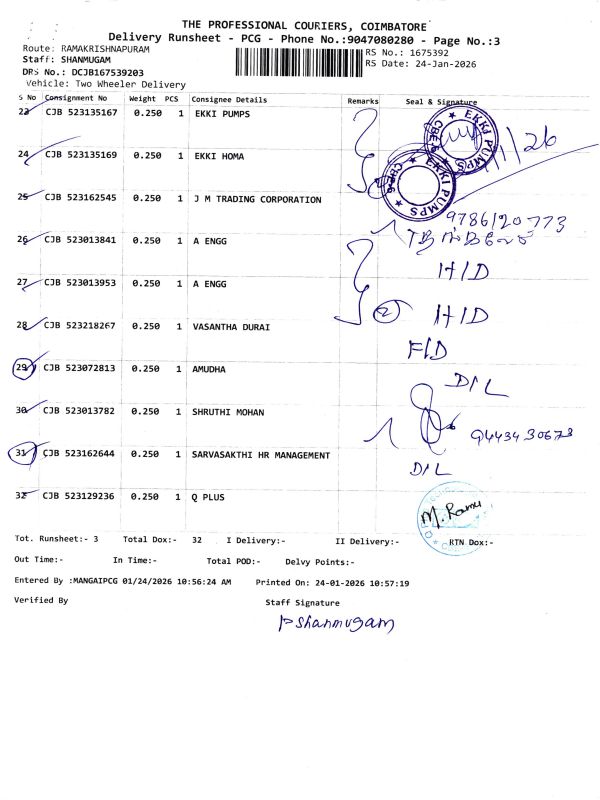 THE PROFESSIONAL COURIERS, COIMBATORE
Delivery Runsheet - PCG - Phone No.:9047080280 - Page No.:3
Route: RAMAKRISHNAPURAM
RS No.: 1675392
Staff: SHANMUGAM
RS Date: 24-Jan-2026
DRS No.: DCJB167539203
Vehicle: Two Wheeler Delivery
S No Consignment No Weight PCS Consignee Details Remarks Seal & Signature
23 CJB 523135167 0.250 1 EKKI PUMPS
EKKI PUMPS CBE-6
24 CJB 523135169 0.250 1 EKKI HOMA
EKKI PUMPS CBE-6
25 CJB 523162545 0.250 1 J M TRADING CORPORATION
9786120773
26 CJB 523013841 0.250 1 A ENGG
H/D
27 CJB 523013953 0.250 1 A ENGG
2 H/D
28 CJB 523218267 0.250 1 VASANTHA DURAI
F/D
29 CJB 523072813 0.250 1 AMUDHA
D/L
30 CJB 523013782 0.250 1 SHRUTHI MOHAN
9443430673
31 CJB 523162644 0.250 1 SARVASAKTHI HR MANAGEMENT
D/L
32 CJB 523129236 0.250 1 Q PLUS
M. Ramu
Tot. Runsheet:- 3 Total Dox:- 32 I Delivery:- II Delivery:- RTN Dox:-
Out Time:- In Time:- Total POD:- Delvy Points:-
Entered By :MANGAIPCG 01/24/2026 10:56:24 AM Printed On: 24-01-2026 10:57:19
Verified By Staff Signature
P Shanmugam